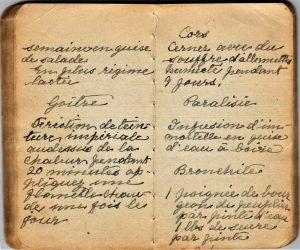 semaine en guise
de salade
En plus régime
lacté
Goître
Friction de tein
ture impériale
au dessus de la
chaleur pendant
20 minutes ap
pliquez une
flanelle chau
de une fois le
jour
Cors
Cerner avec du
souffre d'allumettes
humecté pendant
9 jours.
Paralisie
Infusion d'im
mortelles en guise
d'eau à boire
Bronchite
1 poignée de bour
geons de peuplier
par pinte d'eau
1 lbs de sucre
par pinte